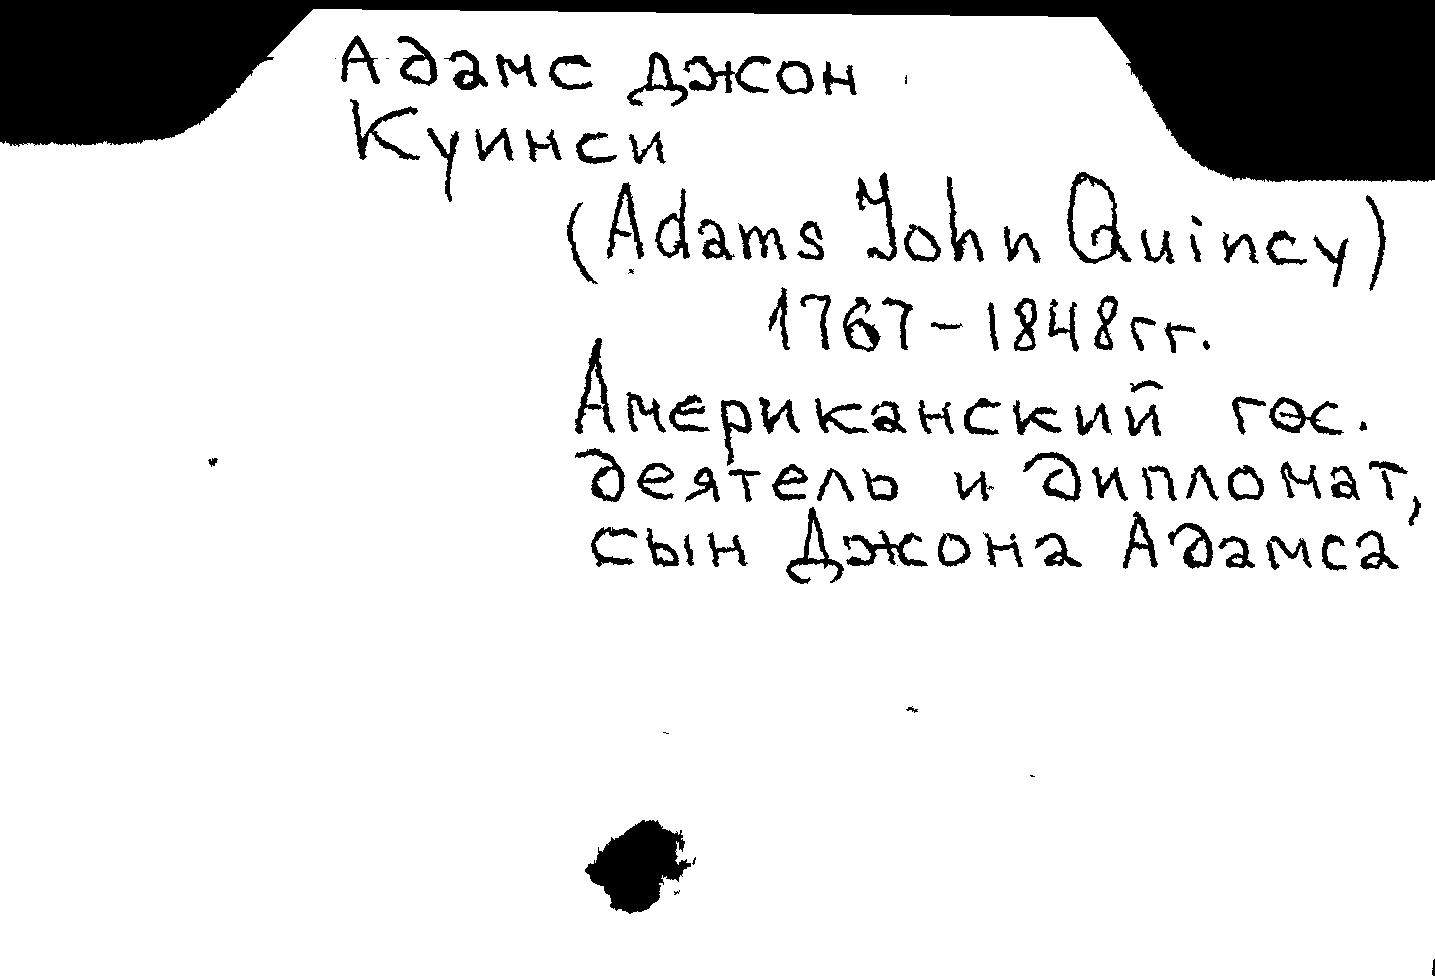 Адамс Джон
Куинси
(Adams John Quincy)
1767-1848гг.
Американский гос.
деятель и дипломат,
сын Джона Адамса